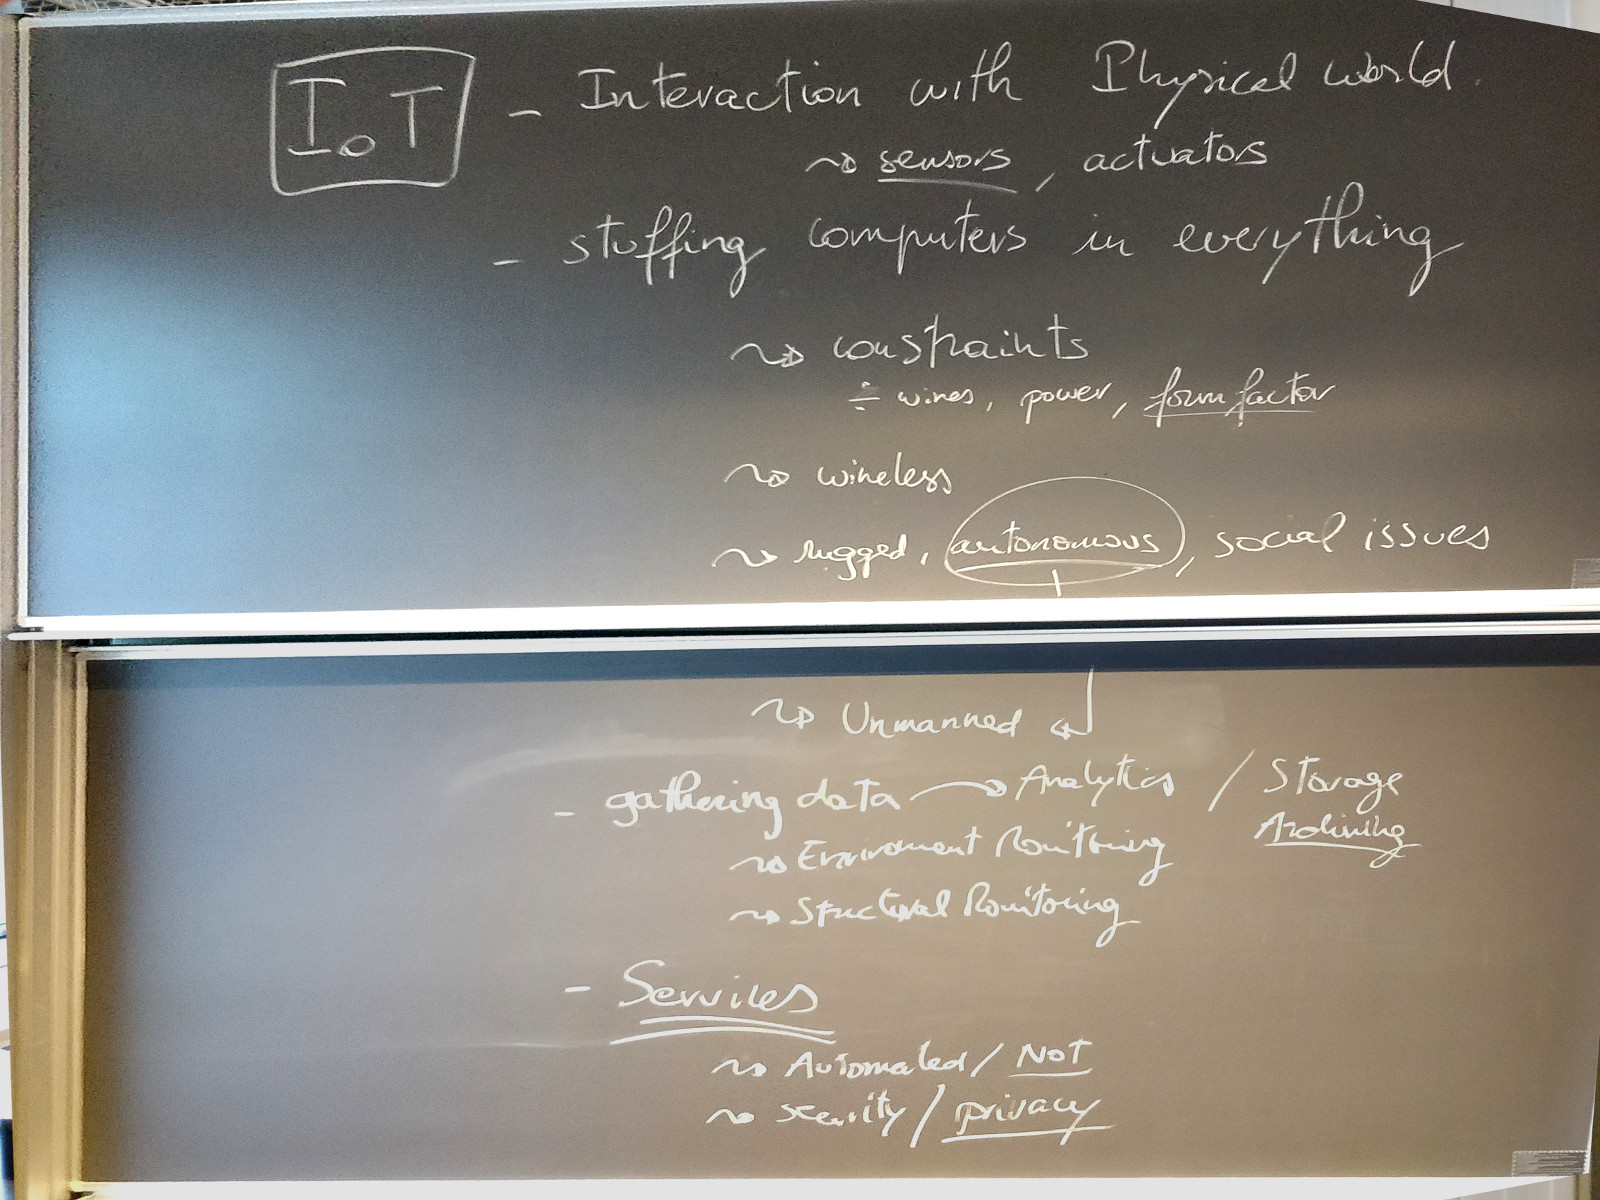 IoT - Interaction with Physical world.
~> sensors, actuators
- stuffing computers in everything
~> constraints
÷ wires, power, form factor
~> wireless
~> rugged, autonomous, social issues
~> Unmanned
- gathering data → Analytics / Storage
Archiving
~> Environment Monitoring
~> Structural Monitoring
- Services
~> Automated / NOT
~> security / privacy